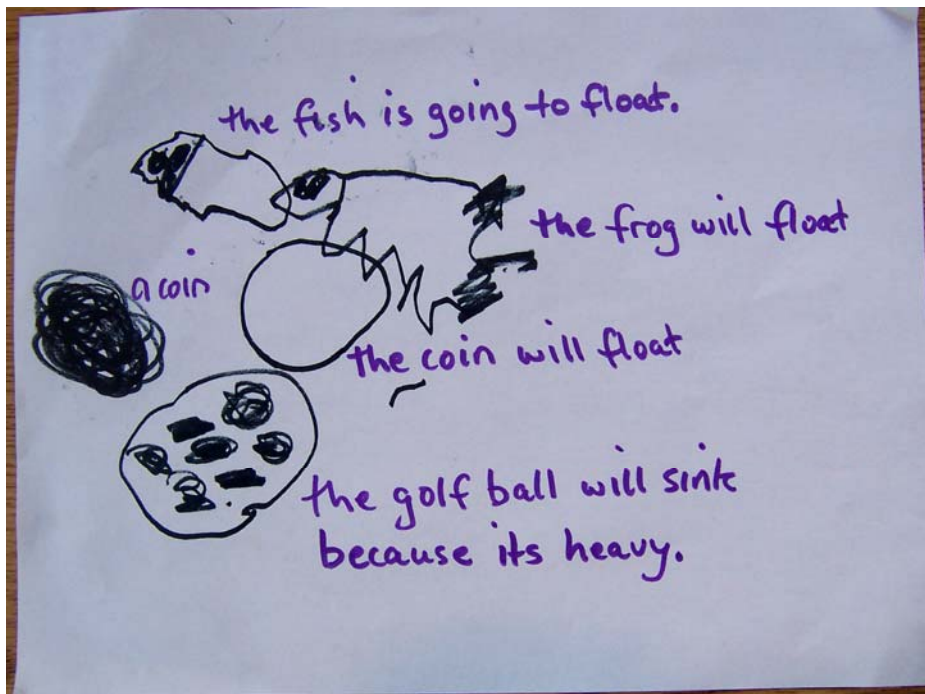 the fish is going to float.
the frog will float
a coin
the coin will float
the golf ball will sink
because its heavy.